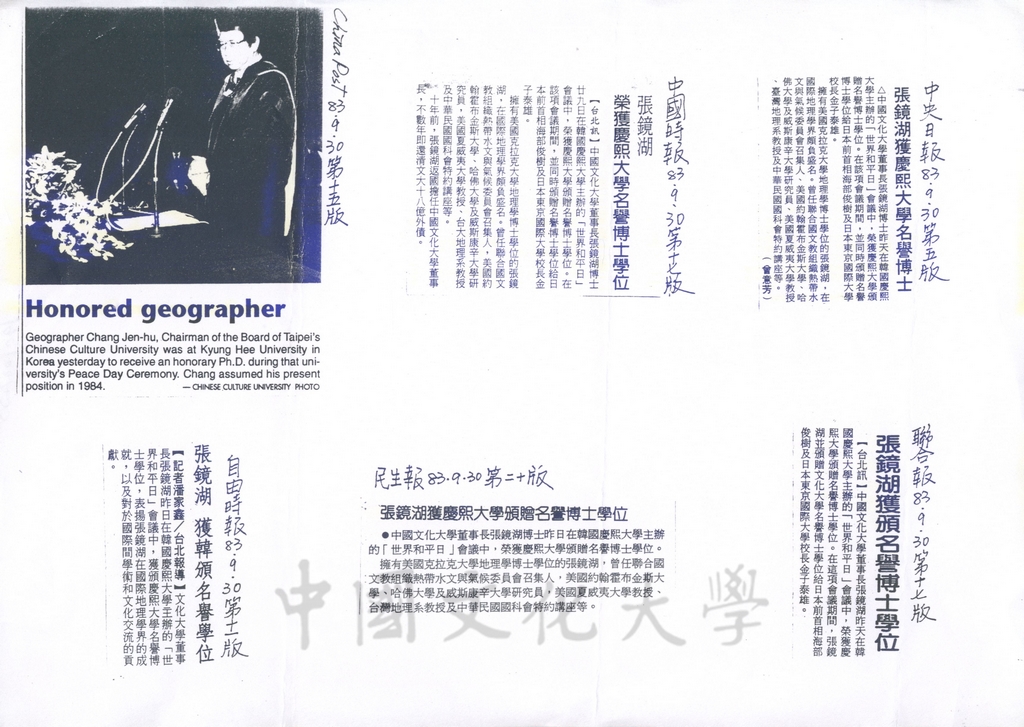 China Post 83.9.30第十五版
Honored geographer
Geographer Chang Jen-hu, Chairman of the Board of Taipei's
Chinese Culture University was at Kyung Hee University in
Korea yesterday to receive an honorary Ph.D. during that uni-
versity's Peace Day Ceremony. Chang assumed his present
position in 1984.
— CHINESE CULTURE UNIVERSITY PHOTO
中國時報 83.9.30第十七版
張鏡湖
榮獲慶熙大學名譽博士學位
【台北訊】中國文化大學董事長張鏡湖博士
廿九日在韓國慶熙大學主辦的「世界和平日」
會議中，榮獲慶熙大學頒贈名譽博士學位。在
該項會議期間，並同時頒贈名譽博士學位給日
本前首相海部俊樹及日本東京國際大學校長金
子泰雄。
擁有美國克拉克大學地理學博士學位的張鏡
湖，在國際地理學界頗負盛名。曾任聯合國文
教組織熱帶水文與氣候委員會召集人，美國約
翰霍布金斯大學、哈佛大學及威斯康辛大學研
究員，美國夏威夷大學教授、台大地理系教授
及中華民國國科會特約講座等。
十年前，張鏡湖返國擔任中國文化大學董事
長，不數年即還清文大十八億外債。
中央日報 83.9.30第五版
張鏡湖獲慶熙大學名譽博士
△中國文化大學董事長張鏡湖博士昨天在韓國慶熙
大學主辦的「世界和平日」會議中，榮獲慶熙大學頒
贈名譽博士學位。在該項會議期間，並同時頒贈名譽
博士學位給日本前首相海部俊樹及日本東京國際大學
校長金子泰雄。
擁有美國克拉克大學地理學博士學位的張鏡湖，在
國際地理學界頗負盛名。曾任聯合國文教組織熱帶水
文與氣候委員會召集人、美國約翰霍布金斯大學、哈
佛大學及威斯康辛大學研究員、美國夏威夷大學教授
、臺灣地理系教授及中華民國國科會特約講座等。
（曾意芳）
自由時報 83.9.30第十一版
張鏡湖 獲韓頒名譽學位
【記者潘家鑫／台北報導】文化大學董事
長張鏡湖昨日在韓國慶熙大學主辦的「世
界和平日」會議中，獲頒慶熙大學名譽博
士學位，表揚張鏡湖在國際地理學界的成
就，以及對於國際間學術和文化交流的貢
獻。
民生報 83.9.30 第二十版
張鏡湖獲慶熙大學頒贈名譽博士學位
●中國文化大學董事長張鏡湖博士昨日在韓國慶熙大學主辦
的「世界和平日」會議中，榮獲慶熙大學頒贈名譽博士學位。
擁有美國克拉克大學地理學博士學位的張鏡湖，曾任聯合國
文教組織熱帶水文與氣候委員會召集人，美國約翰霍布金斯大
學、哈佛大學及威斯康辛大學研究員，美國夏威夷大學教授、
台灣地理系教授及中華民國國科會特約講座等。
聯合報 83.9.30第十七版
張鏡湖獲頒名譽博士學位
【台北訊】中國文化大學董事長張鏡湖昨天在韓
國慶熙大學主辦的「世界和平日」會議中，榮獲慶
熙大學頒贈名譽博士學位。在這項會議期間，張鏡
湖並頒贈文化大學名譽博士學位給日本前首相海部
俊樹及日本東京國際大學校長金子泰雄。
中國文化大學